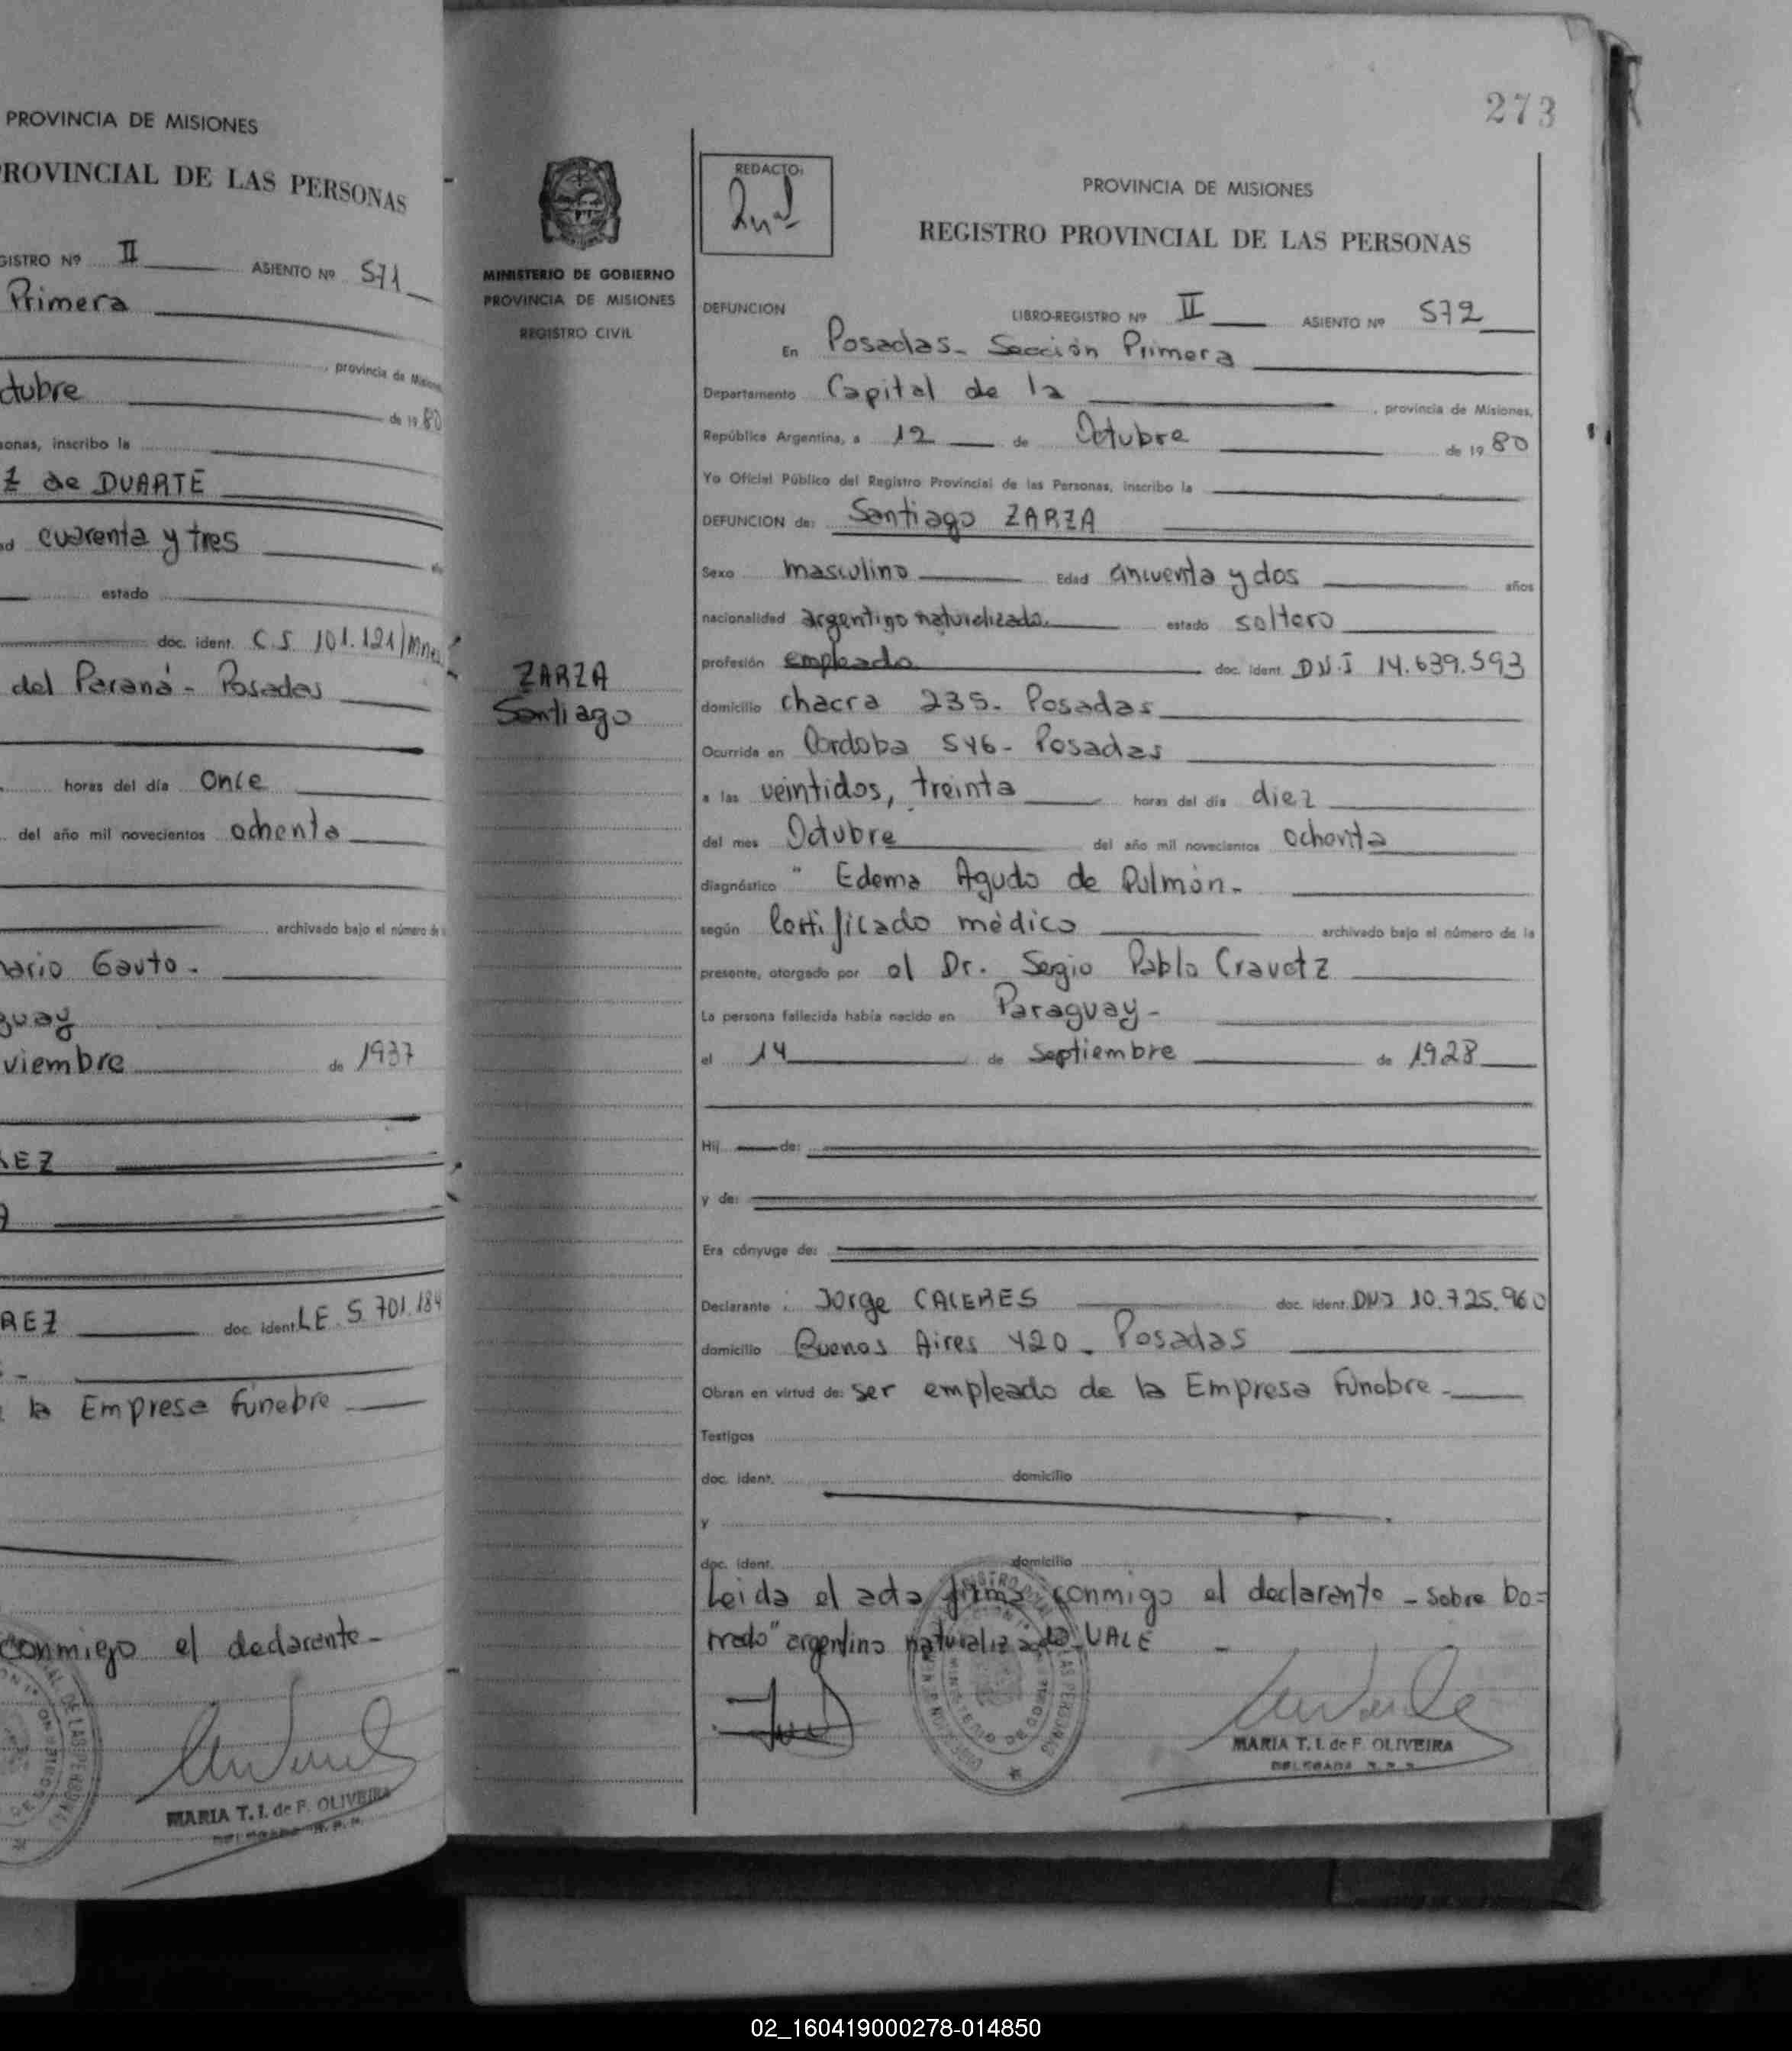 PROVINCIA DE MISIONES
PROVINCIAL DE LAS PERSONAS
GISTRO Nº II ASIENTO Nº 571
Primera
, provincia de Misiones,
ctubre de 19 80
sonas, inscribo la
Z de DUARTE
ad cuarenta y tres
estado
doc. ident. C.I. 101.121/Mnes
del Paraná - Posadas
horas del día once
del año mil novecientos ochenta
archivado bajo el número de
nario Gauto.
guay
viembre de 1937
REZ doc. ident. L.E 5.701.184
la Empresa Fúnebre
conmigo el declarante-
MARIA T. I. de F. OLIVEIRA
273
MINISTERIO DE GOBIERNO
PROVINCIA DE MISIONES
REGISTRO CIVIL
ZARZA
Santiago
REDACTO:
PROVINCIA DE MISIONES
REGISTRO PROVINCIAL DE LAS PERSONAS
DEFUNCION LIBRO-REGISTRO Nº II ASIENTO Nº 572
En Posadas- Sección Primera
Departamento Capital de la , provincia de Misiones,
República Argentina, a 12 de Octubre de 19 80
Yo Oficial Público del Registro Provincial de las Personas, inscribo la
DEFUNCION de: Santiago ZARZA
Sexo masculino Edad cincuenta y dos años
nacionalidad argentino naturalizado. estado soltero
profesión empleado doc. ident. D.N.I 14.639.593
domicilio chacra 235- Posadas
Ocurrida en Cordoba 546- Posadas
a las veintidos, treinta horas del día diez
del mes Octubre del año mil novecientos ochenta
diagnóstico " Edema Agudo de Pulmón-
según Certificado médico archivado bajo el número de la
presente, otorgado por el Dr. Sergio Pablo Cravetz
La persona fallecida había nacido en Paraguay-
el 14 de Septiembre de 1928
Hij de:
y de:
Era cónyuge de:
Declarante: Jorge CACERES doc. ident. DNI 10.725.960
domicilio Buenos Aires 420- Posadas
Obran en virtud de: ser empleado de la Empresa Fúnebre-
Testigos
doc. ident. domicilio
y
doc. ident. domicilio
Leida el acta firma conmigo el declarante - Sobre bo=
rrado "argentino naturalizado" VALE -
MARIA T. I. de F. OLIVEIRA
DELEGADA R.P.P.
02_160419000278-014850